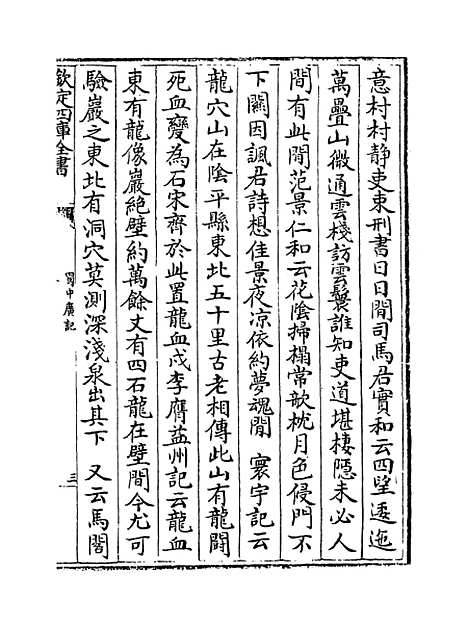 意村村静吏束刑書日日閒司馬君實和云四望逶迤
萬疊山微通雲棧訪雲鬟誰知吏道堪棲隱未必人
間有此閒范景仁和云花陰掃榻常欹枕月色侵門不
下關因諷君詩想佳景夜凉依約夢魂閒 寰宇記云
龍穴山在陰平縣東北五十里古老相傳此山有龍鬪
死血變為石宋齊於此置龍血戍李膺益州記云龍血
東有龍像巖絶壁約萬餘丈有四石龍在壁間今尤可
驗巖之東北有洞穴莫測深淺泉出其下 又云馬閣
欽定四庫全書
蜀中廣記
三